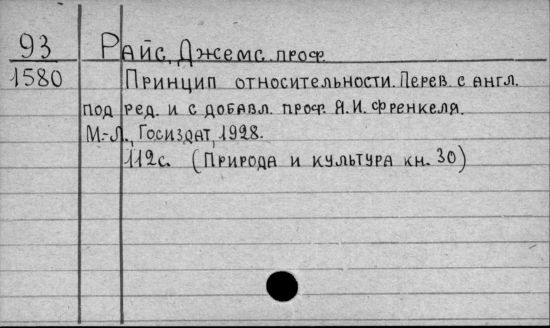 93 Райс, Джемс. проф.
1580 Принцип относительности. Перев. с англ.
под ред. и с добавл. проф. Я.И. Френкеля.
М.-Л., Госиздат, 1928.
112с. (Природа и культура кн. 30)